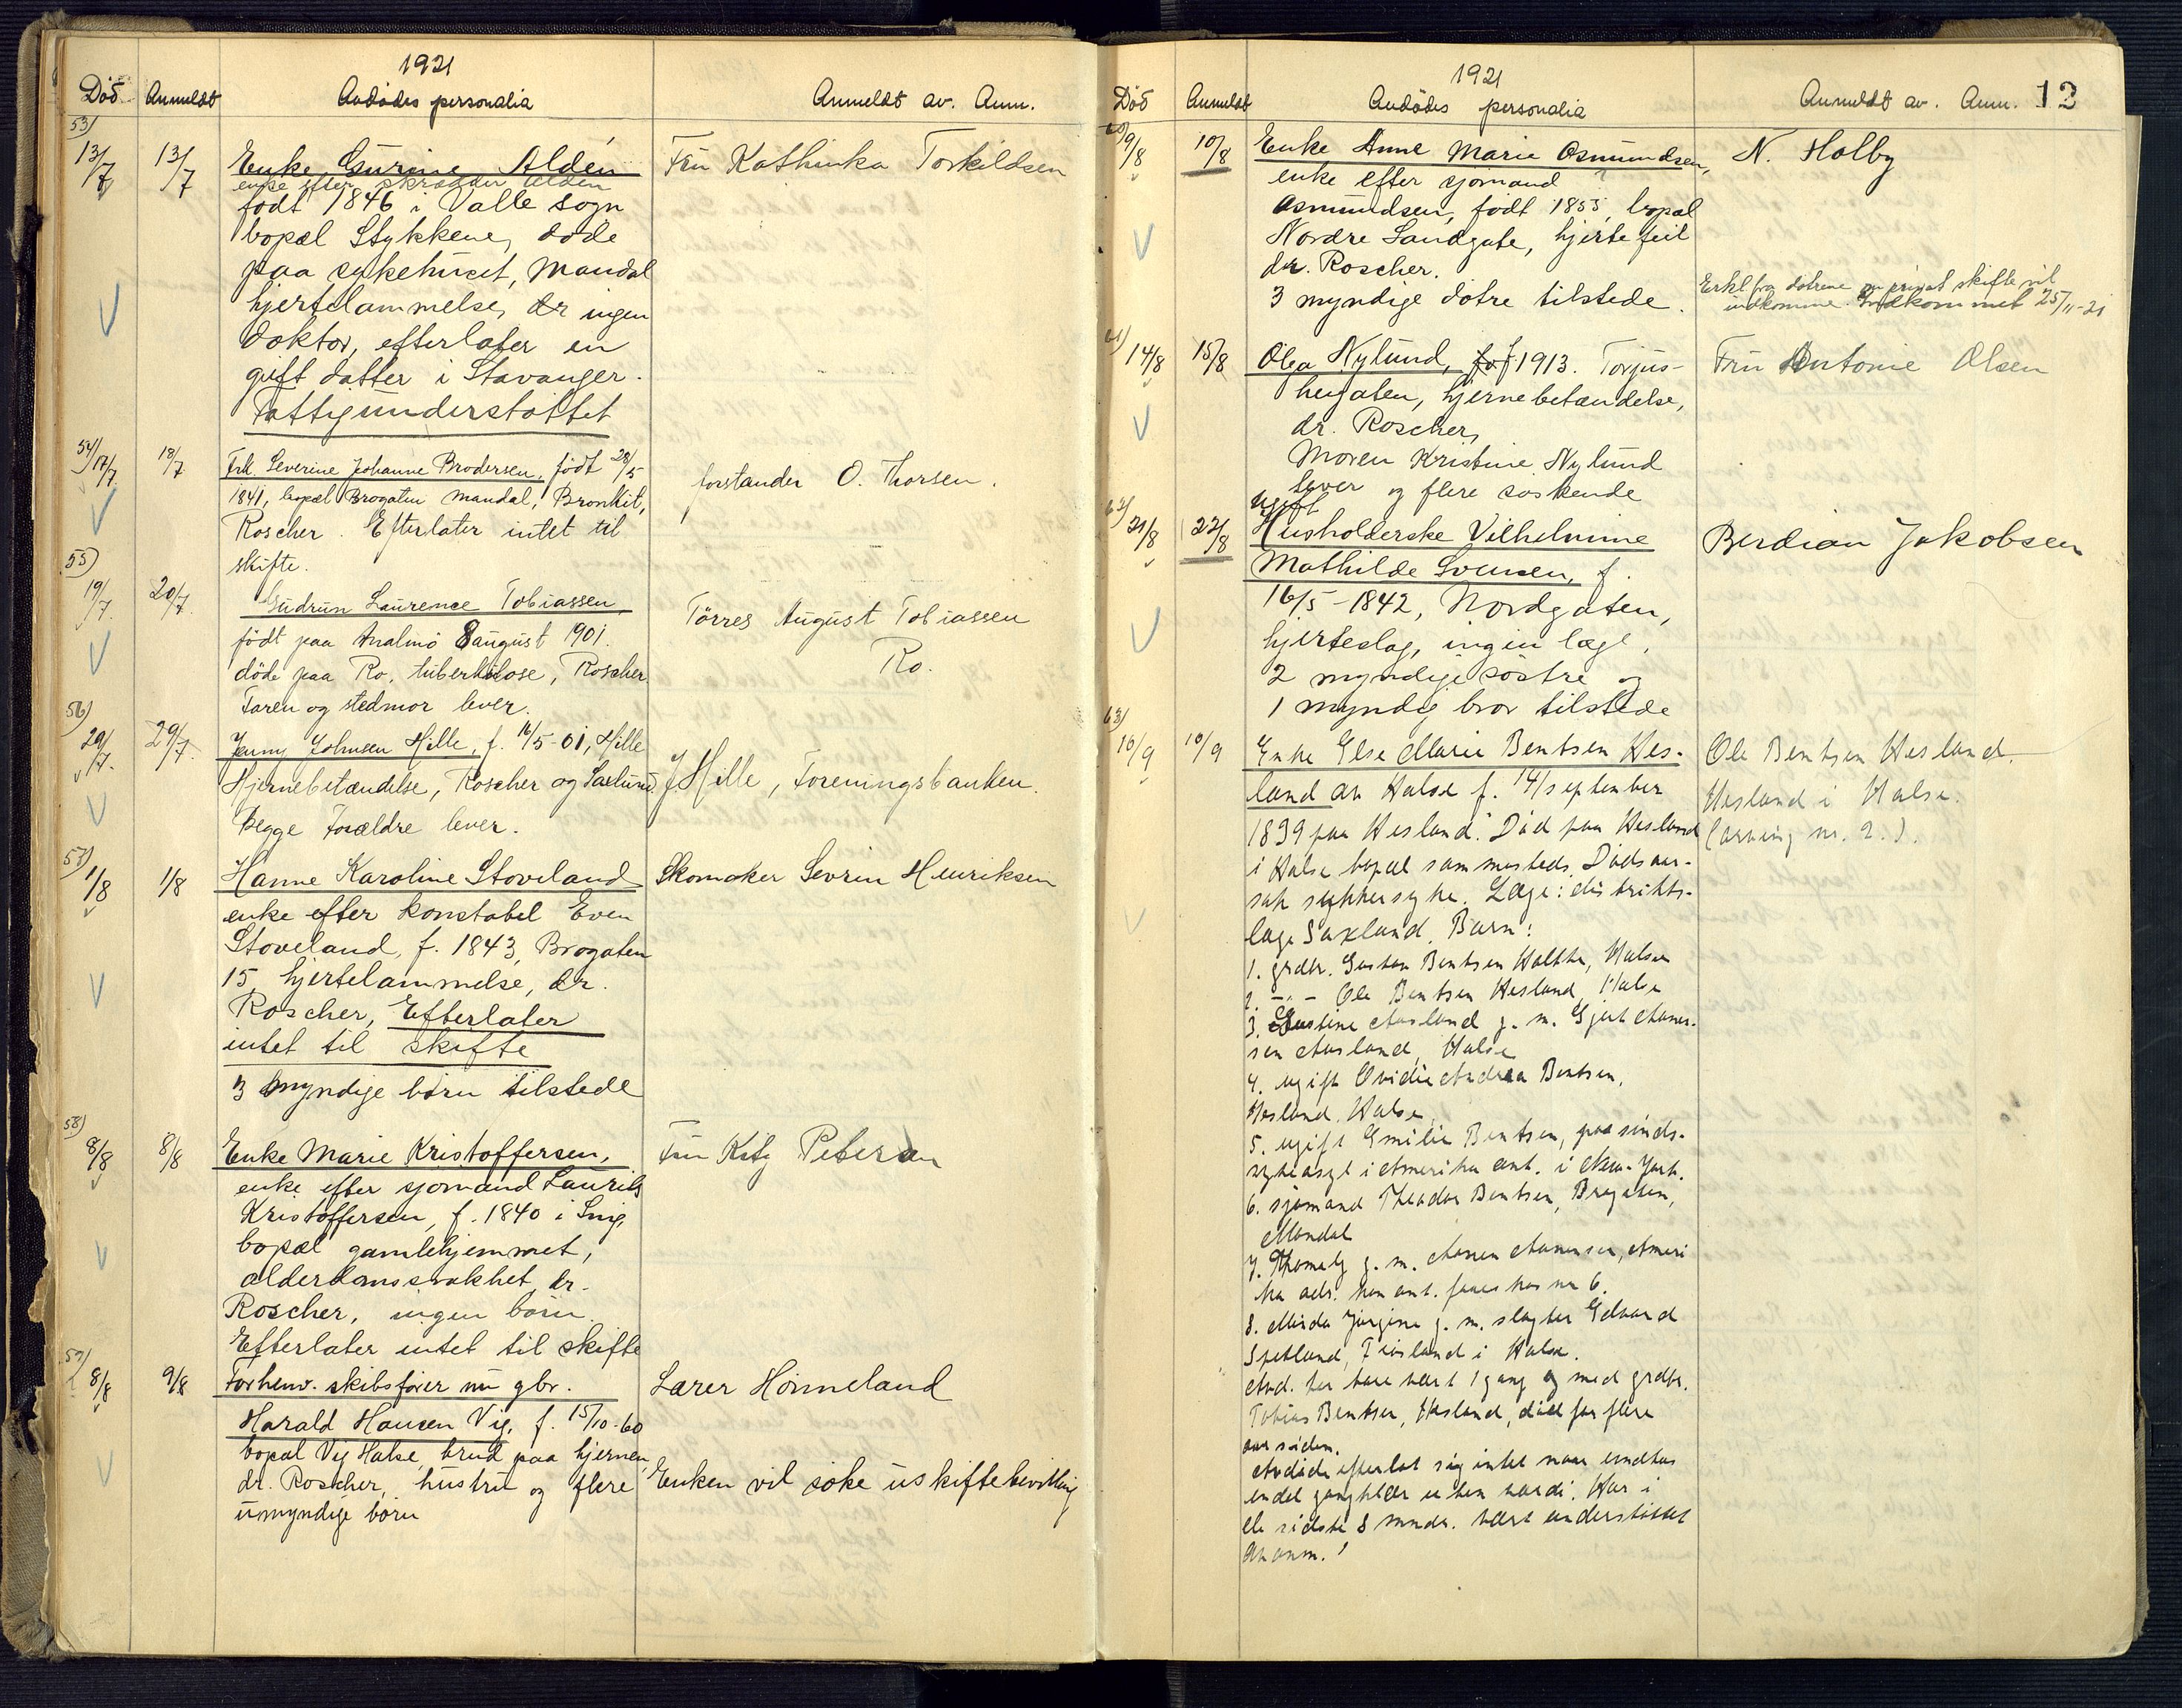 1921
Död Anmeldt Avdödes personalia Anmeldt av. Anm.
53)
13/7 13/7 Enke Gurine Alden Frü Kathinka Torkildsen
enke efter skrædder Alden
født 1846 i Valle sogn
bopæl Stykkene, døde
paa sykehuset, Mandal
hjertelammelse, dr ingen
doktor, efterlater en
gift datter i Stavanger.
Fattigunderstøttet
54) 17/7 18/7 Frk. Severine Johanne Brodersen, født 28/5 forstander O. Thorsen.
1841, bopæl Brogaten Mandal, Bronkit,
Roscher. Efterlater intet til
skifte.
55)
19/7. 20/7. Gudrun Laurence Tobiassen Törres August Tobiassen
født paa Malmö 8 august 1901. Ro.
döde paa Ro, tuberkulose, Roscher
Faren og stedmor lever.
56)
29/7. 29/7. Jenny Johnsen Hille, f. 16/5-01, Hille
Hjernebetændelse, Roscher og Saxlund J. Hille, Foreningsbanken.
Begge Forældre lever.
57)
1/8 1/8 Hanne Karoline Stoveland Skomaker Sevrin Henriksen
enke efter konstabel Even
Stoveland, f. 1843, Brogaten
15, hjertelammelse, dr.
Roscher, Efterlater
intet til skifte
3 myndige børn tilstede
58)
8/8 8/8 Enke Marie Kristoffersen, Frü Kitty Petersen
enke efter sjømand Laurits
Kristoffersen, f. 1840 i
bopæl gamlehjemmet,
alderdomssvakhet, dr.
Roscher, ingen børn.
Efterlater intet til skifte
59)
8/8 9/8 Forhenv. skibsfører nu gbr. Lærer Hönneland
Harald Hansen Vig, f. 15/10-60
bopæl Vig Halse, brud paa hjernen,
dr. Roscher, hustru og flere Enken vil söke uskiftebevilling
umyndige børn
1921
Död Anmeldt Avdödes personalia Anmeldt av. Anm. 12
60)
9/8 10/8 Enke Anne Marie Osmundsen, N. Holby
enke efter sjømand ?
Osmundsen, født 1855, bopæl
Nordre Sandgate, hjertefeil
dr. Roscher.
3 myndige døtre tilstede. Erkl fra døtrene om privat skifte vil
indkomme. Indkommet 25/11-21
61)
14/8 15/8 Olga Nylund, f. 1913. Torjus- Frü Antonie Olsen
heigaten, hjernebetændelse,
dr. Roscher,
Moren Kristine Nylund
lever og flere søskende
62) ugift
21/8 22/8 Husholderske Vilhelmine Berdian Jakobsen
Mathilde Svensen, f.
16/5-1842, Nordgaten,
hjerteslag, ingen læge,
2 myndige søstre og
1 myndig bror tilstede
63)
10/9 10/9 Enke Else Marie Bentsen Hes- Ole Bentsen Hesland.
land av Halse f. 14/september Hesland i Halse.
1839 paa Hesland. Död paa Hesland (arving nr. 2.).
i Halse bopæl sammesteds. Dödsaar-
sak sukkersyke. Læge: distrikts-
læge Saxlund. Barn:
1. grdbr. Gustav Bentsen Holthe, Halse
2. -"- Ole Bentsen Hesland, Halse
3. Gustine Aasland g. m. Gjert Aanen-
sen Aasland, Halse
4. ugift Ovidie Andrea Bentsen,
Hesland. Halse.
5. ugift Emilie Bentsen, paa sinds-
sykeasyl i Amerika ant. i New-York.
6. sjømand Theodor Bentsen, Brogaten,
Mandal
7. g. m. Aanen Aanensen, Ameri
ka adr. kan ant. faaes hos nr 6.
8. Mirda Jörgine g. m. slagter Edvard
Spetland, Frøsland i Halse.
Avd. har bare vært 1 gang g med grdbr.
Tobias Bentsen, Hesland, död for flere
aar siden.
Avdöde efterlot sig intet naar undtas
endel gangklær uten værdi. Har i
de sidste 8 mndr. vært understöttet
av anm.!